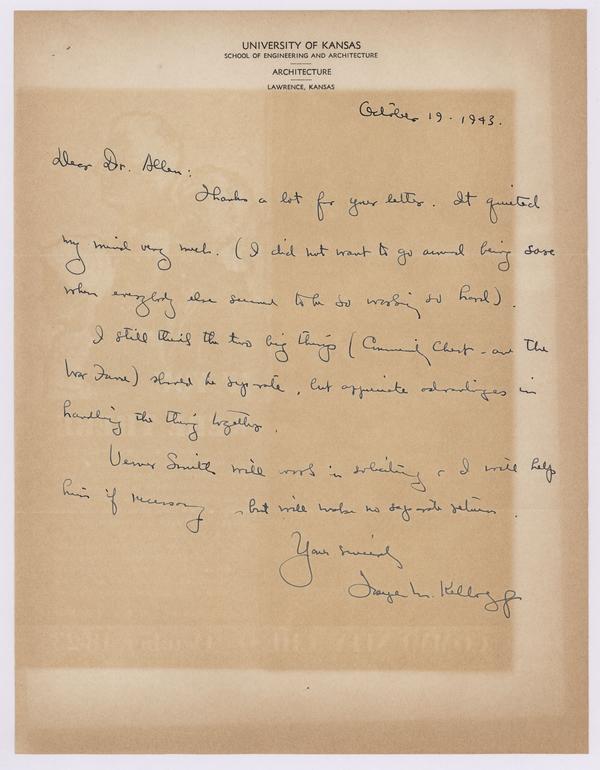 UNIVERSITY OF KANSAS
SCHOOL OF ENGINEERING AND ARCHITECTURE
ARCHITECTURE
LAWRENCE, KANSAS
October 19. 1943.
Dear Dr. Allen:
Thanks a lot for your letter. It quieted
my mind very much. (I did not want to go around being sore
when everybody else seemed to be so working so hard).
I still think the two big things (Community Chest - and the
War Fund) should be separate, but appreciate advantages in
handling the thing together.
Verner Smith will work in soliciting & I will help
him if necessary, but will make no separate return.
Yours sincerely
M. Kellogg